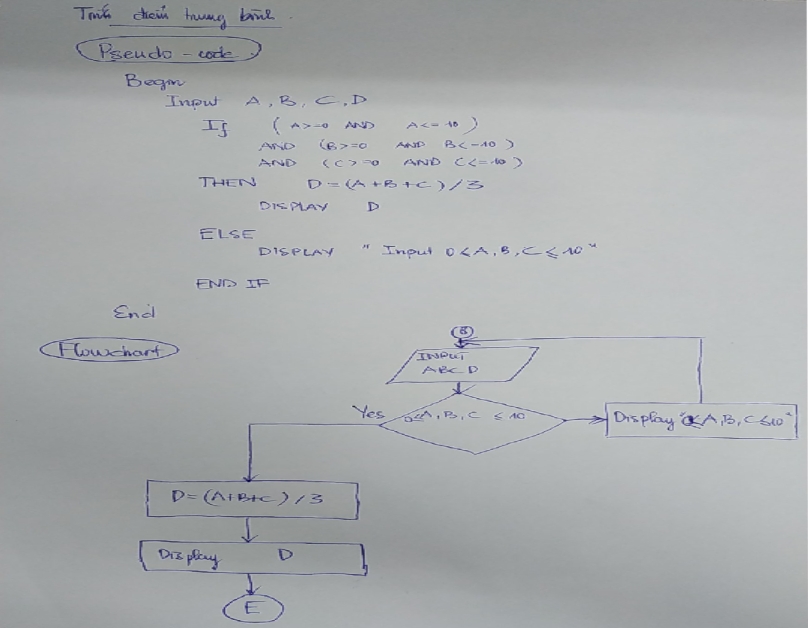 Tính điểm trung bình.
Pseudo-code.
Begin
Input A, B, C, D
If (A>=0 AND A<=10)
AND (B>=0 AND B<=10)
AND (C>=0 AND C<=10)
THEN D=(A+B+C)/3
DISPLAY D
ELSE
DISPLAY "Input 0≤A,B,C≤10"
END IF
End
Flowchart
B
INPUT
ABCD
Yes 0≤A,B,C ≤10
Display "0≤A,B,C≤10"
D=(A+B+C)/3
Display D
E